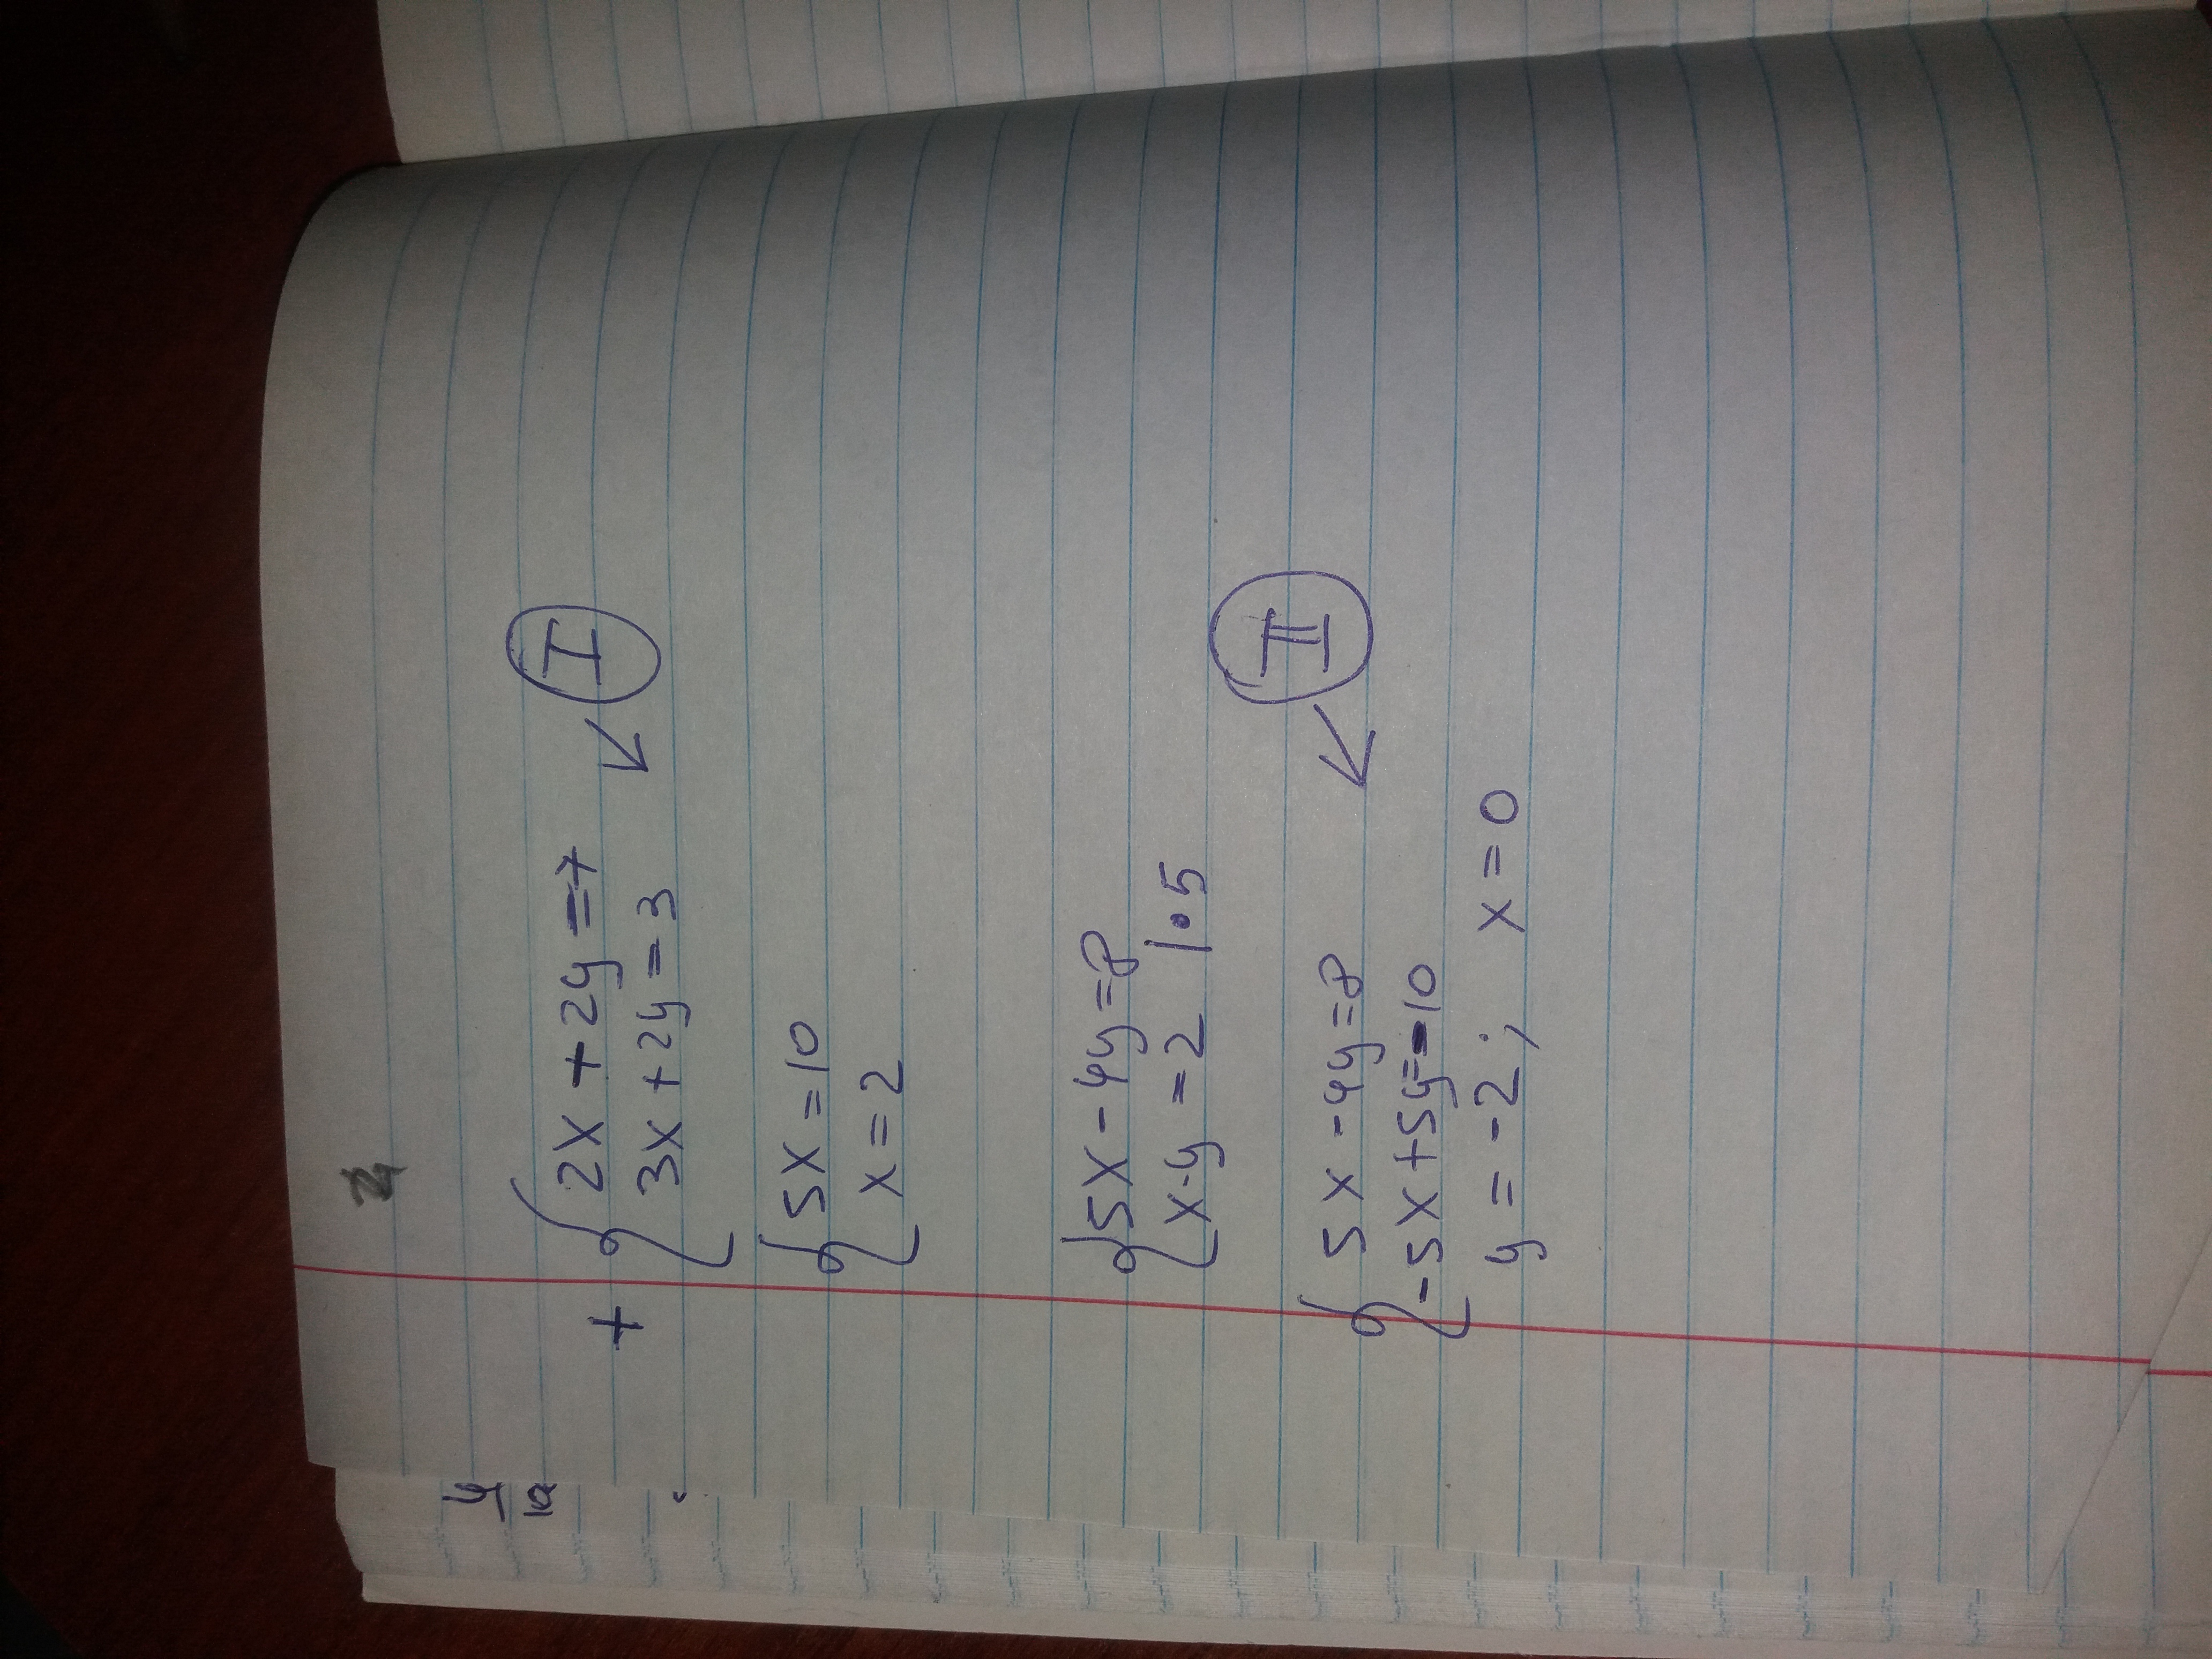 2x + 2y = 7
I
+
3x + 2y = 3
5x = 10
x = 2
5x - 4y = 8
x - y = 2 | • 5
II
5x - 4y = 8
-5x + 5y = -10
y = -2; x = 0
4